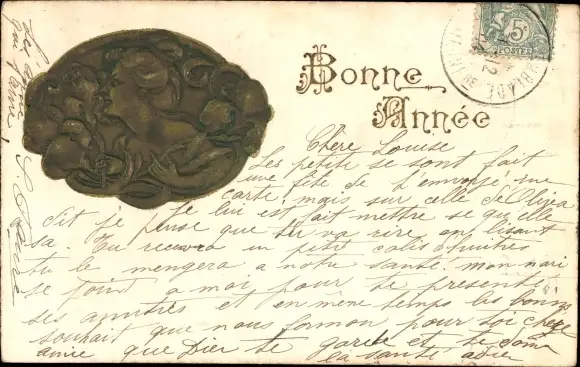 Bonne
Année
5c
POSTES
Chère Louise
Les petite se sont fait
une fête de t'envoyé une
carte, mais sur celle d'Oliza
Je lui est fait mettre se qu'elle
dit je pense que tu va rire en lisant
sa. Tu recevra un petit colis d'huitres
tu le mengera a notre santé! mon mari
se joint a moi pour se présenté
ses amitiés et en mème temps les bonne
souhait que nous formon pour toi chère
amie que Dier te garde et te donn
la santé adier
qui t'aime